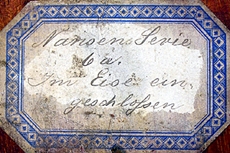 Nansens Serie
6 a.
Im Eise ein
geschlossen